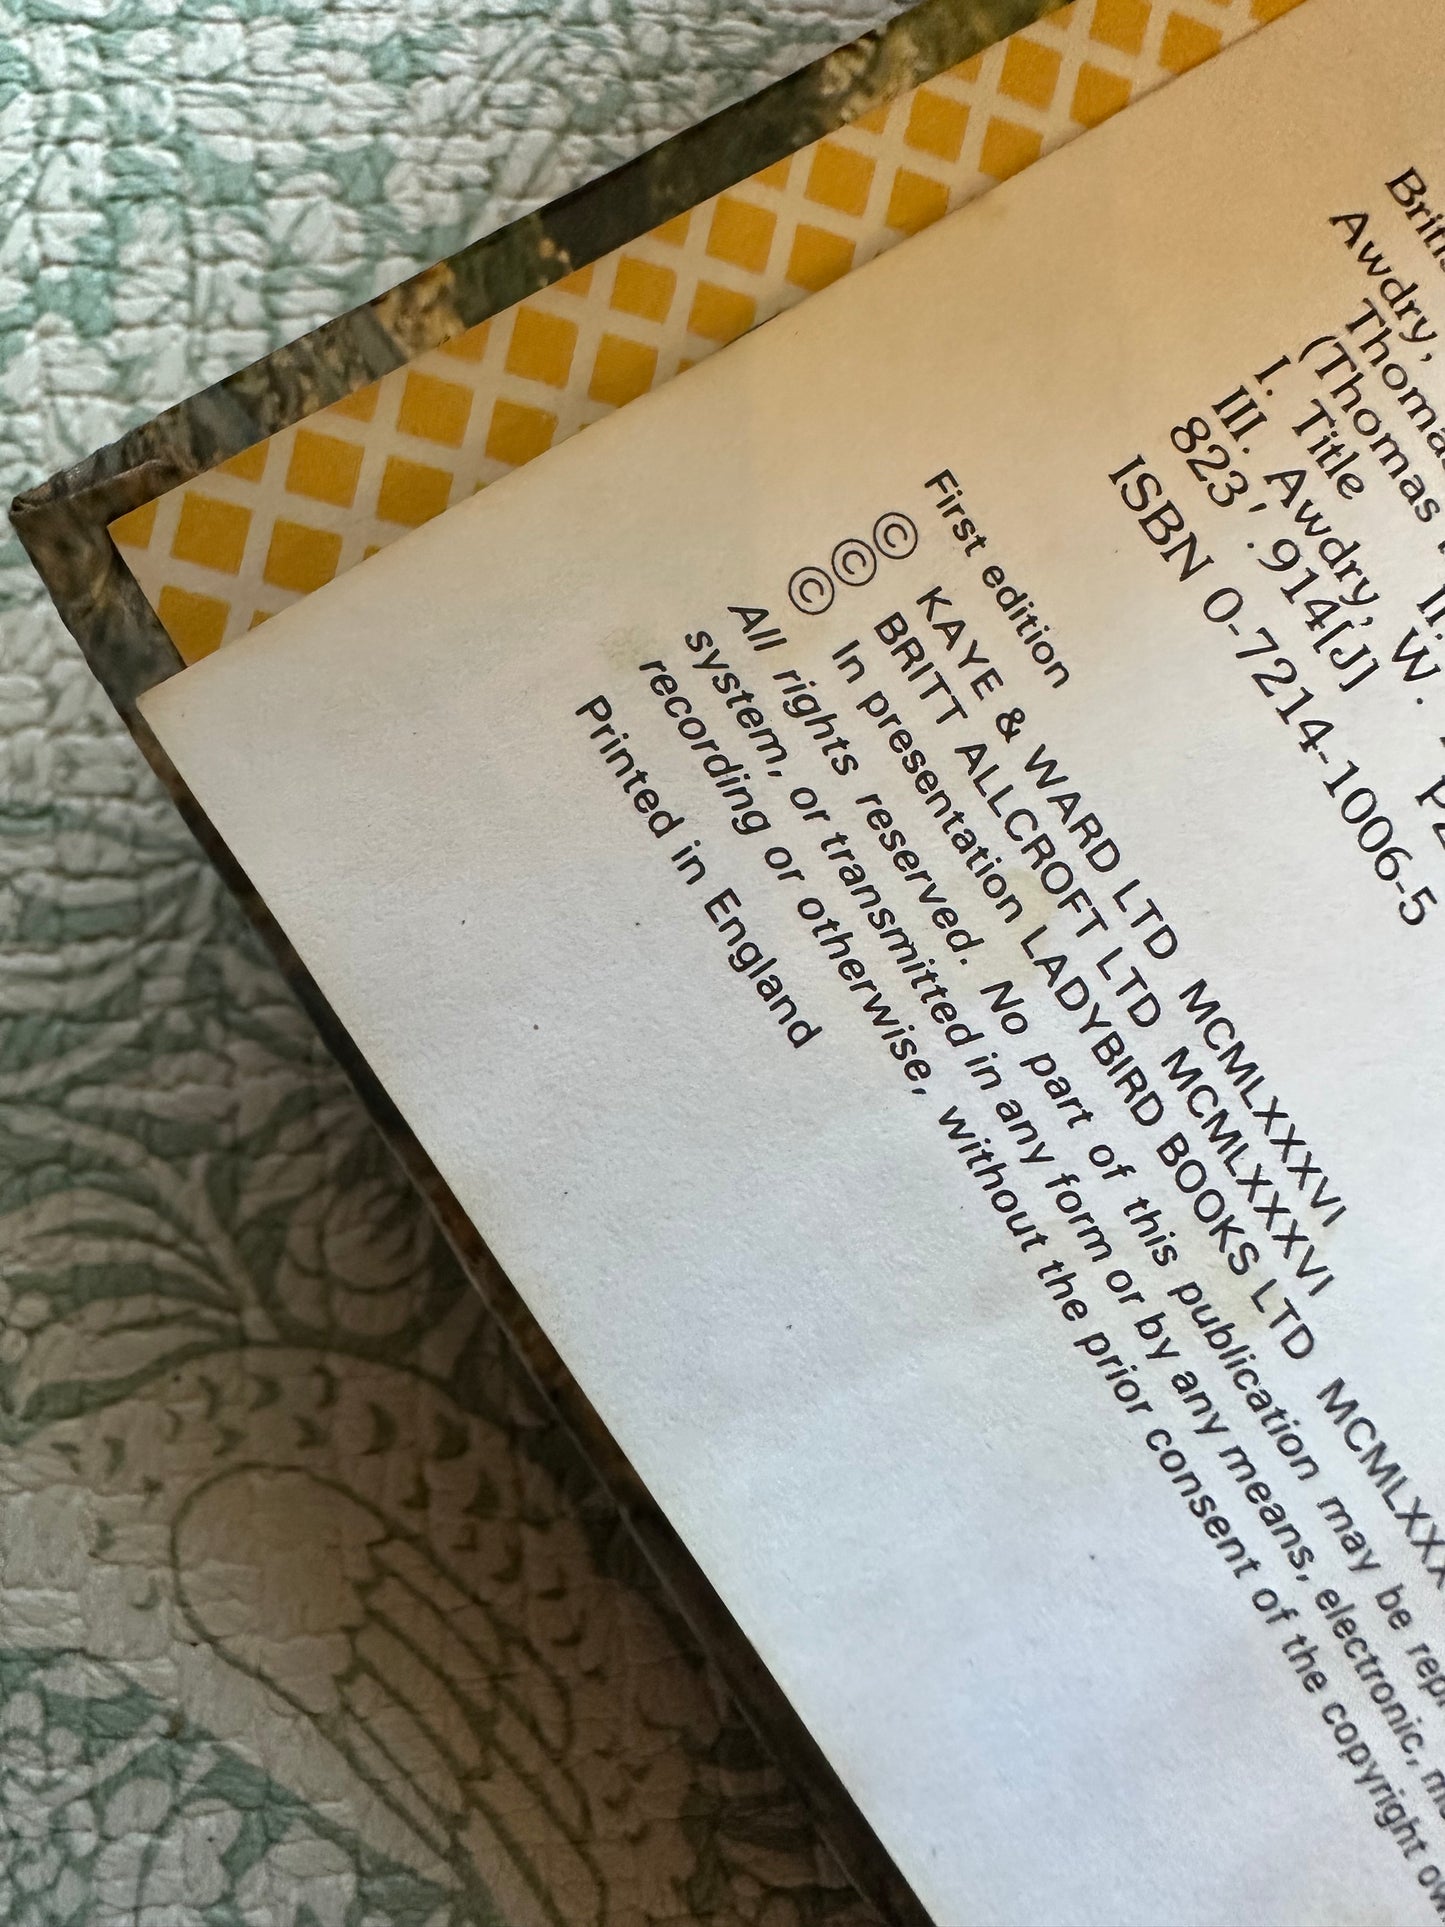 Awdry,
(Thomas
I. Title
III. Awdry, W.
823′.914[J]
ISBN 0-7214-1006-5
First edition
© KAYE & WARD LTD MCMLXXXVI
© BRITT ALLCROFT LTD MCMLXXXVI
© In presentation LADYBIRD BOOKS LTD
All rights reserved. No part of this publication may be
system, or transmitted in any form or by any means, electronic,
recording or otherwise, without the prior consent of the copyright
Printed in England